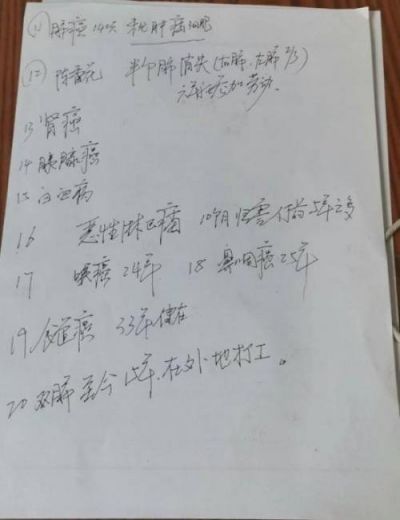 (11) 肺癌 140天 未见肿瘤细胞
(12) 陈 花 半个肺消失(右肺、左肺2/3)
参加劳动.
13 肾癌
14 胰腺癌
15 白血病
16 恶性淋巴瘤 10个月
17 喉癌 24年 18 鼻咽癌 25年
19 食道癌 33年健在
20 双肺 至今15年. 在外地打工。